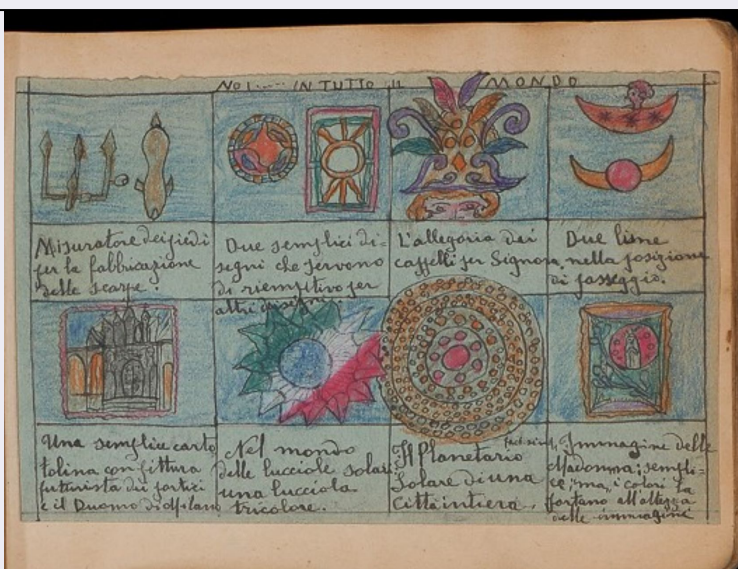 NOI..... IN TUTTO IL MONDO
Misuratore dei piedi
per la fabbricazione
delle scarpe.
Due semplici di=
segni che servono
di riempitivo per
altri disegni.
L'allegoria dei
cappelli per Signora.
Due lune
nella posizione
di passeggio.
Una semplice carto
tolina con pittura
futurista dei portici
e il Duomo di Milano
Nel mondo
delle lucciole solari
una lucciola
tricolore.
Il Planetario
Solare di una
Città intiera.
Immagine della
Madonna; sempli=
ce, "ma, i colori la
portano all'altezza
delle immagini